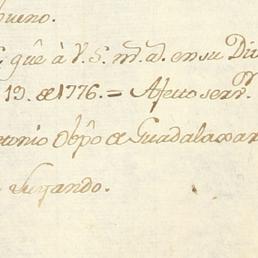 bueno.
gûe à V. S. m.s a.s en su Div
19. de 1776. = Afecto serv.or
tonio Obpô de Guadalaxar
Luyando.